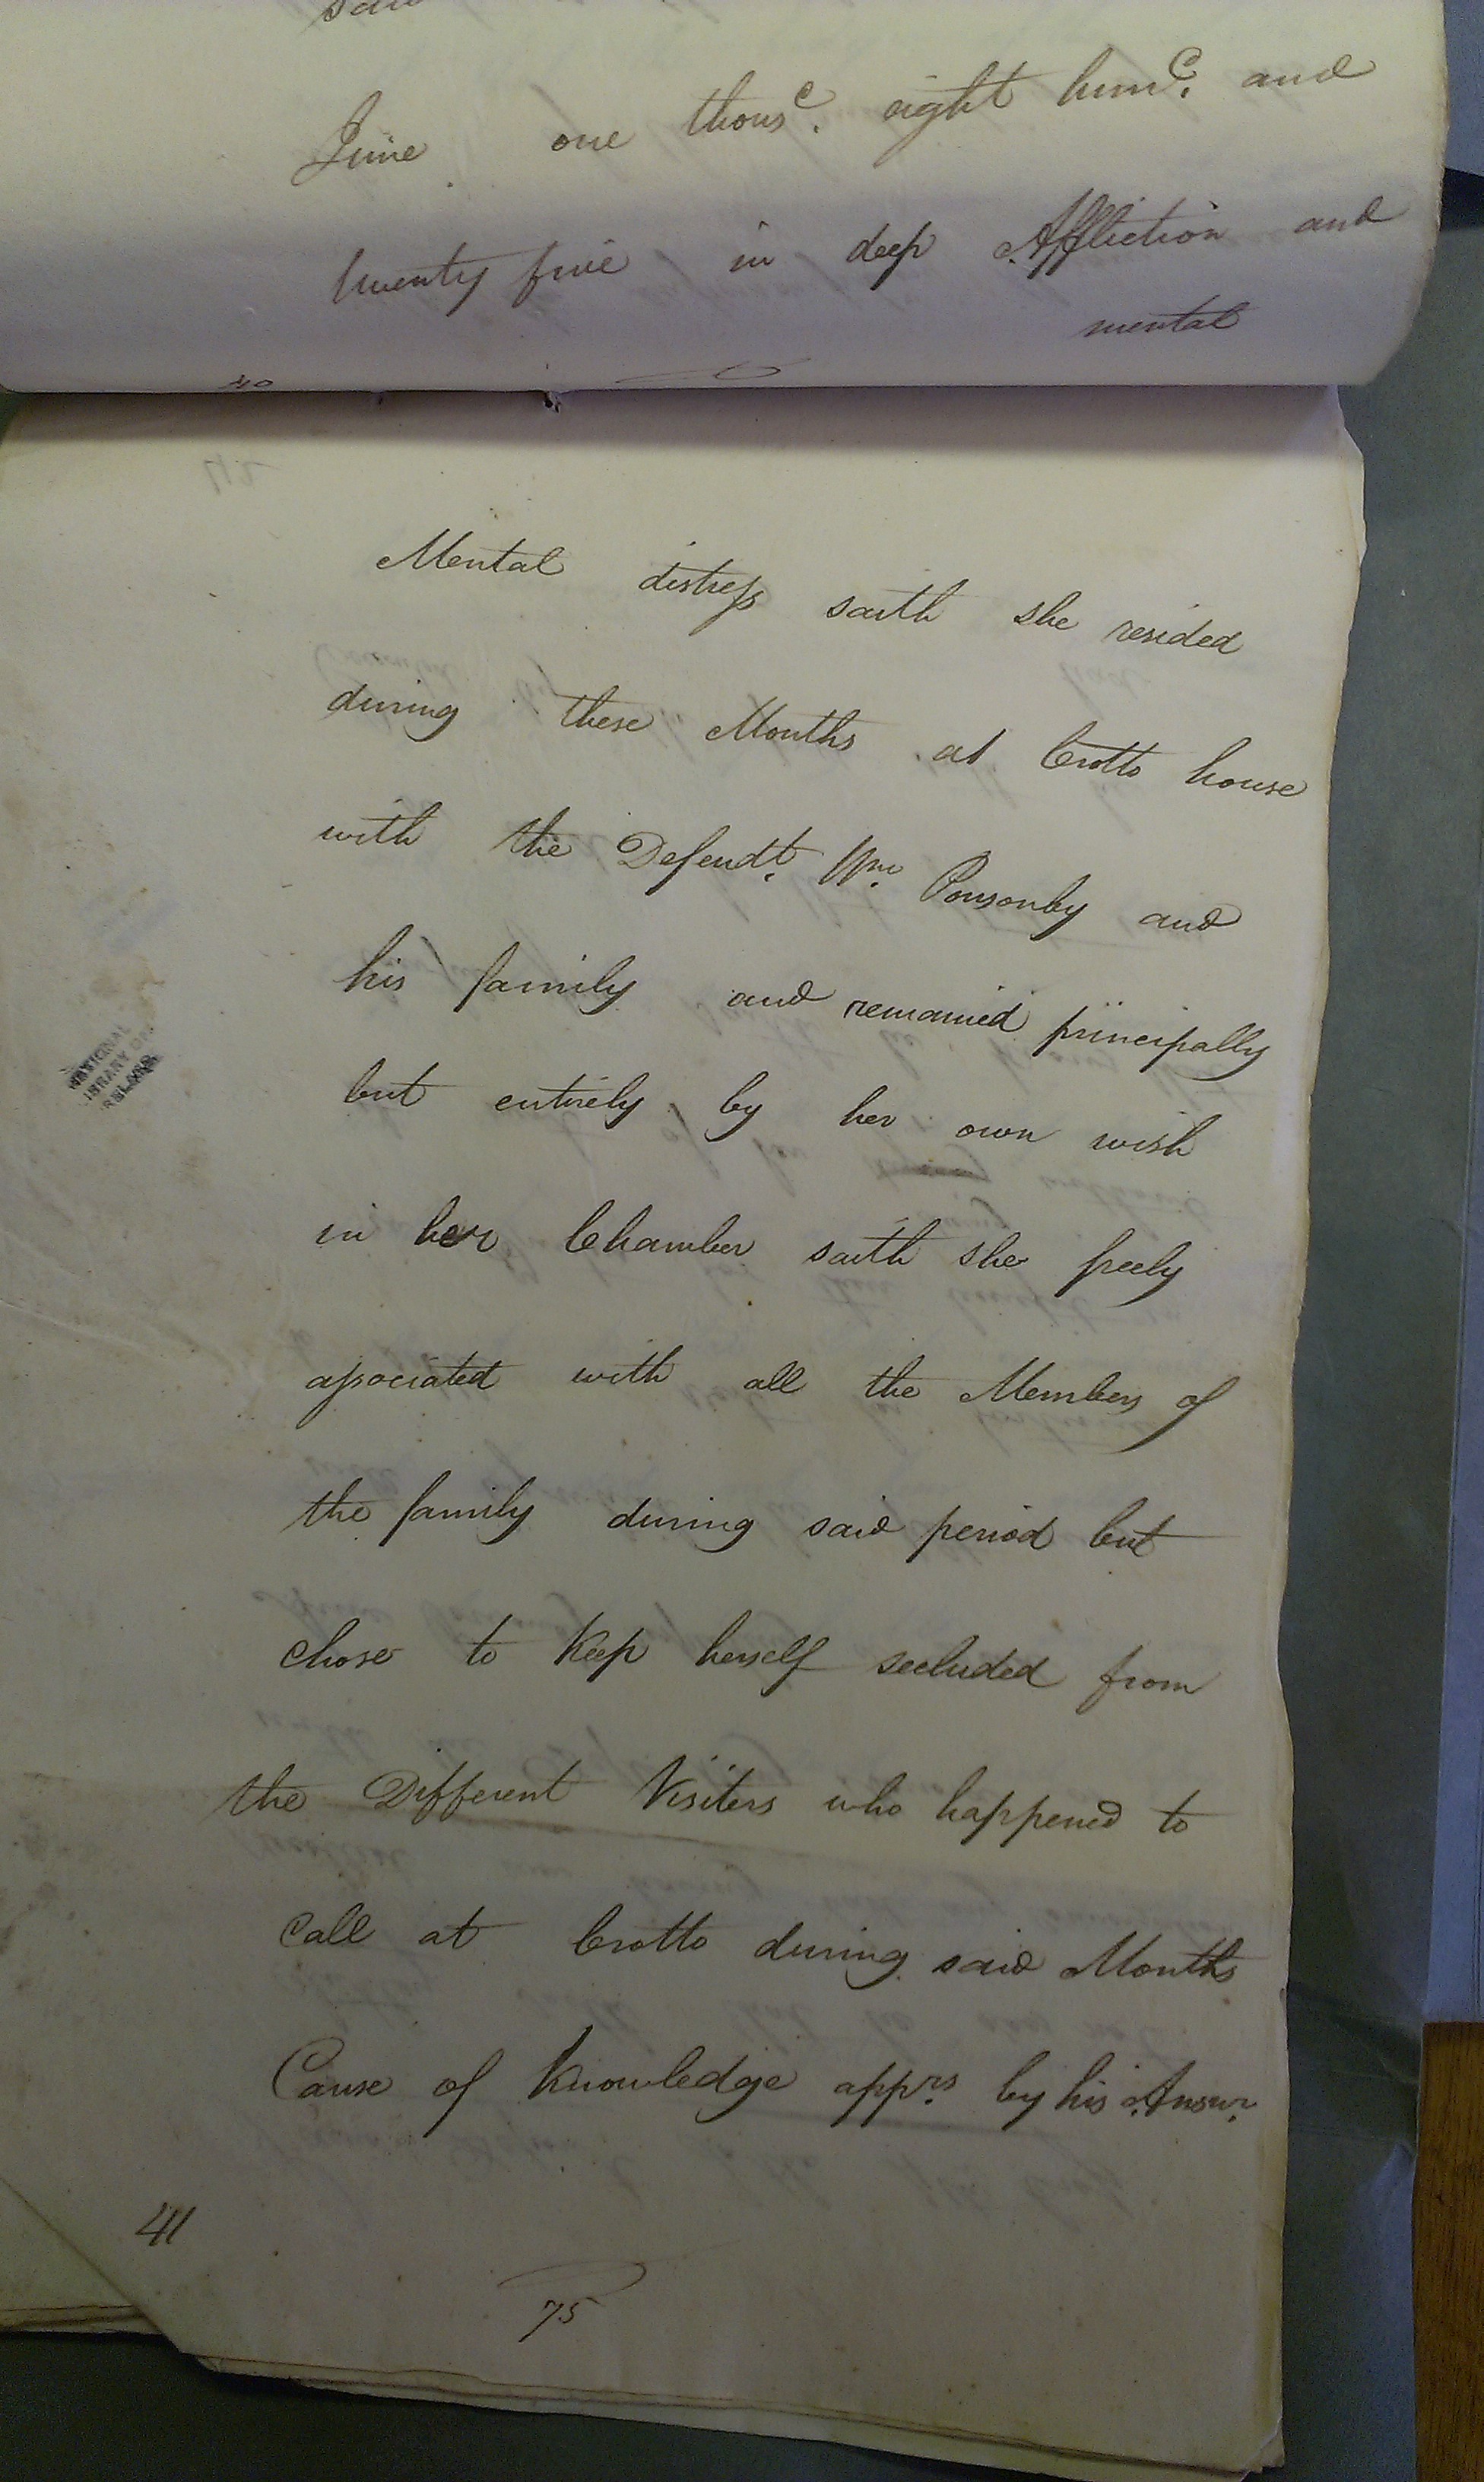 said
June one thous<sup>d</sup>. eight hund<sup>d</sup>. and
twenty five in deep Affliction and
mental
40
Mental distress saith she resided
during these Months at Crotto house
with the Defendt. Wm. Ponsonby and
his family and remained principally
but entirely by her own wish
in her Chamber saith she freely
associated with all the Members of
the family during said period but
chose to Keep herself secluded from
the Different Visiters who happened to
Call at Crotto during said Months
Cause of Knowledge apprs. by his Answr.
NATIONAL
LIBRARY OF
IRELAND
41
75